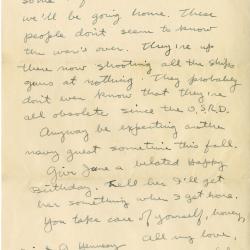 we'll be going home. These
people don't seem to know
the war's over. They're up
there now shooting all the ships
guns at nothing. They probably
don't even know that they're
all obsolete since the O.S.R.D.
Anyway be expecting another
navy guest sometime this fall.
Give Jane a belated Happy
Birthday. Tell her I'll get
her something when I get home.
You take care of yourself, honey,
all my love,